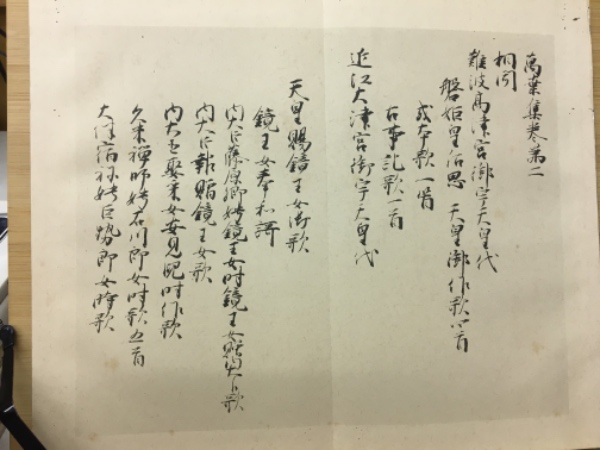 萬葉集巻第二
相聞
難波高津宮御宇天皇代
磐姫皇后思天皇御作歌四首
或本歌一首
古事記歌一首
近江大津宮御宇天皇代
天皇賜鏡王女御歌
鏡王女奉和謌
内大臣藤原卿娉鏡王女時鏡王女贈内大臣歌
内大臣報贈鏡王女歌
内大臣娶采女安見児時作歌
久米禅師娉石川郎女時歌五首
大伴宿祢娉巨勢郎女時歌